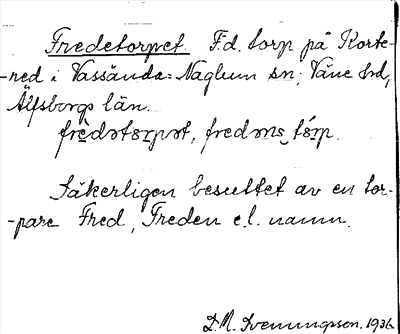 Fredetorpet. F.d. torp på Korte-
-ned i Vassända-Naglum sn, Väne hd,
Älfsborgs län.
frèdətɔrpət, fredəns tɔ́rp.
Säkerligen besuttet av en tor-
-pare Fred, Freden e.l. namn.
D.M. Svenungsson. 1936